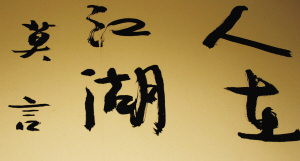 人在
江湖
莫言